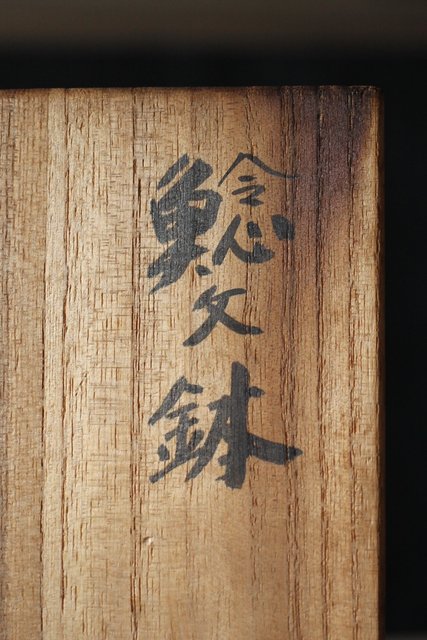 鯰文鉢